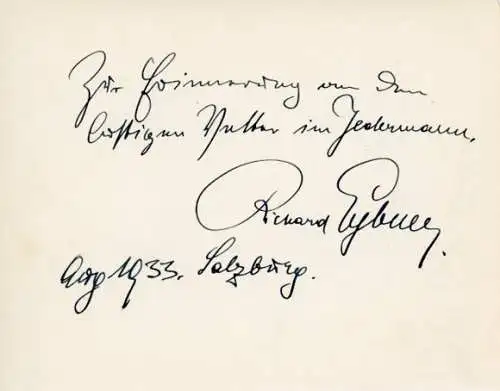 Zur Erinnerung an den
lustigen Vetter im Jedermann.
Richard Eybner.
Aug 1933. Salzburg.